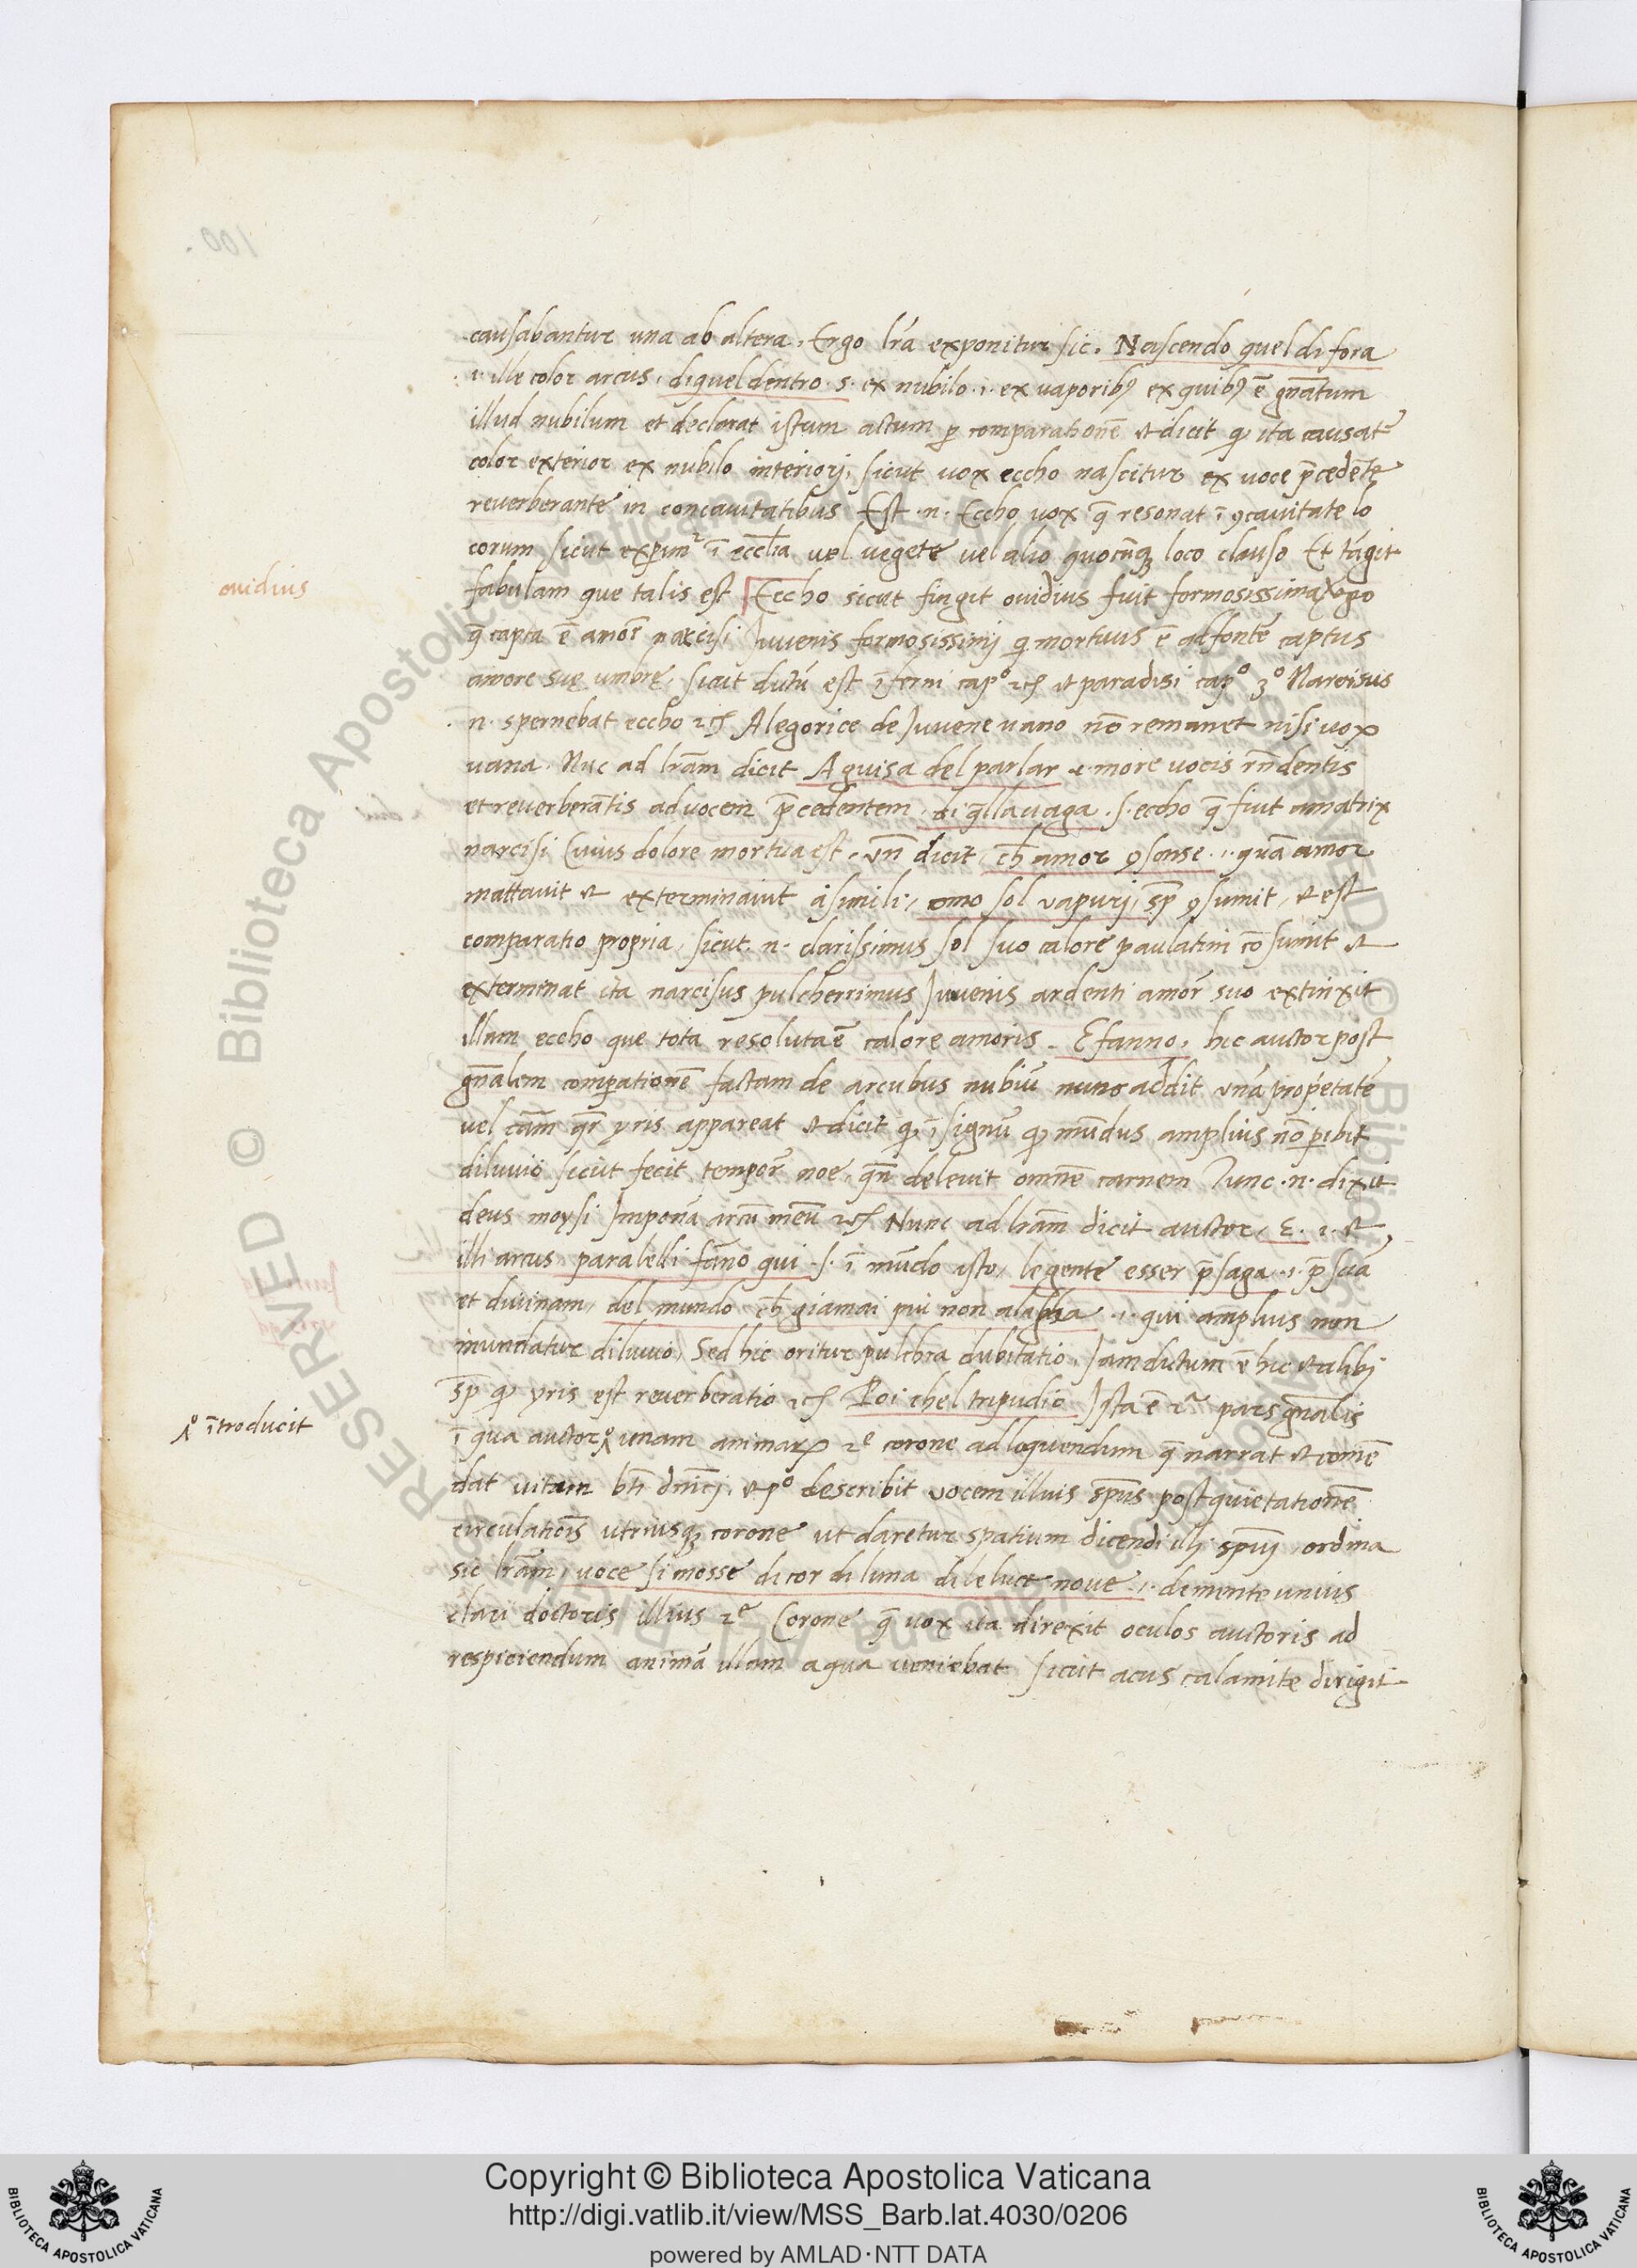 causabantur una ab altera. Ergo lrā exponitur sic. Nascendo quel di fora
.i. ille color arcus. di quel dentro .s. ex nubilo .i. ex vaporibꝰ ex quibꝰ ē gn̄atum
illud nubilum et declarat istum actum ꝑ comparationē et dicit ꝙ ita causat᷑
color exterior ex nubilo interiori, sicut vox eccho nascitur ex voce p̄cedēte
reverberante in concavitatibus Est .n. Eccho vox q̄ resonat ī ꝯcavitate lo
corum sicut experim² ī eccl̄ia vel vegete vel alio quocūqꝫ loco clauso Et tāgit
ovidius
fabulam que talis est Eccho sicut fingit ovidius fuit formosissima virgo
q̄ capta ē amor̄ narcisi Juvenis formosissimj qi mortuus ē ad fontē captus
amore suę umbrę, sicut dictū est īferni capº et paradisi capº 3º Narcisus
.n. spernebat eccho Alegorice de Juvene vano nō remanet nisi vox
vana. Nūc ad lrām dicit A guisa del parlar .i. more vocis rn̄dentis
et reverberātis ad vocem p̄cedentem, di q̄lla vaga .s. eccho q̄ fuit amatrix
narcisi Cuius dolore mortua est, vn̄ dicit, ch̄ amor ꝯsonse .i. quā amor
mattavit et exterminavit a simili, como sol vapurj, sp̄ ꝯsumit, et est
comparatio propria, sicut .n. clarissimus sol suo calore paulatim cōsumit et
exterminat ita narcisus pulcherrimus Juvenis ardenti amor̄ suo extinxit
illam eccho que tota resoluta ē calore amoris. E fanno, hic auctor post
gn̄alem comꝑationē factam de arcubus nubiū nunc addit vnā propetatē
vel cām qr̄ yris appareat et dicit ꝙ ī signū ꝙ mūdus amplius nō ꝑibit
diluvio sicut fecit tempor̄ noe, qn̄ delevit omnē carnem Tunc .n. dixit
deus moysi Imponā arcū meū Nunc ad lrām dicit auctor, E. .i. et
illi arcus paralelli fāno qui .s. ī mūdo isto, le gente esser p̄saga .i. p̄sciā
et divinam, del mundo ch̄ giamai piu non alagha .i. qui amplius non
inundatur diluvio, Sed hic oritur pulchra dubitatio, Jam dictum ē hic et alibj
sp̄ ꝙ yris est reverberatio Poi chel tripudio Ista ē 2ª pars gn̄alis
ī troducit
ī qua auctor unam animaꝝ 2ᵉ corone ad loquendum q̄ narrat et comē
dat vitam bt̄i dn̄icj, et pº describit vocem illius sp̄us post quietationē
circulatiōis utriusqꝫ corone ut daretur spatium dicendi illj sp̄uj, ordina
sic lrām, voce si mosse di cor di luna dele luce nove .i. de mente unius
clari doctoris illius 2ᵉ Corone q̄ vox ita direxit oculos auctoris ad
respiciendum animā illam a qua veniebat sicut acus calamite dirigit
Copyright © Biblioteca Apostolica Vaticana
http://digi.vatlib.it/view/MSS_Barb.lat.4030/0206
powered by AMLAD·NTT DATA